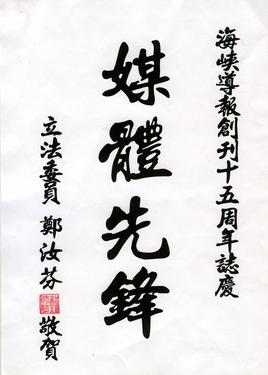 海峽導報創刊十五周年誌慶
媒體先鋒
立法委員 鄭汝芬 敬賀